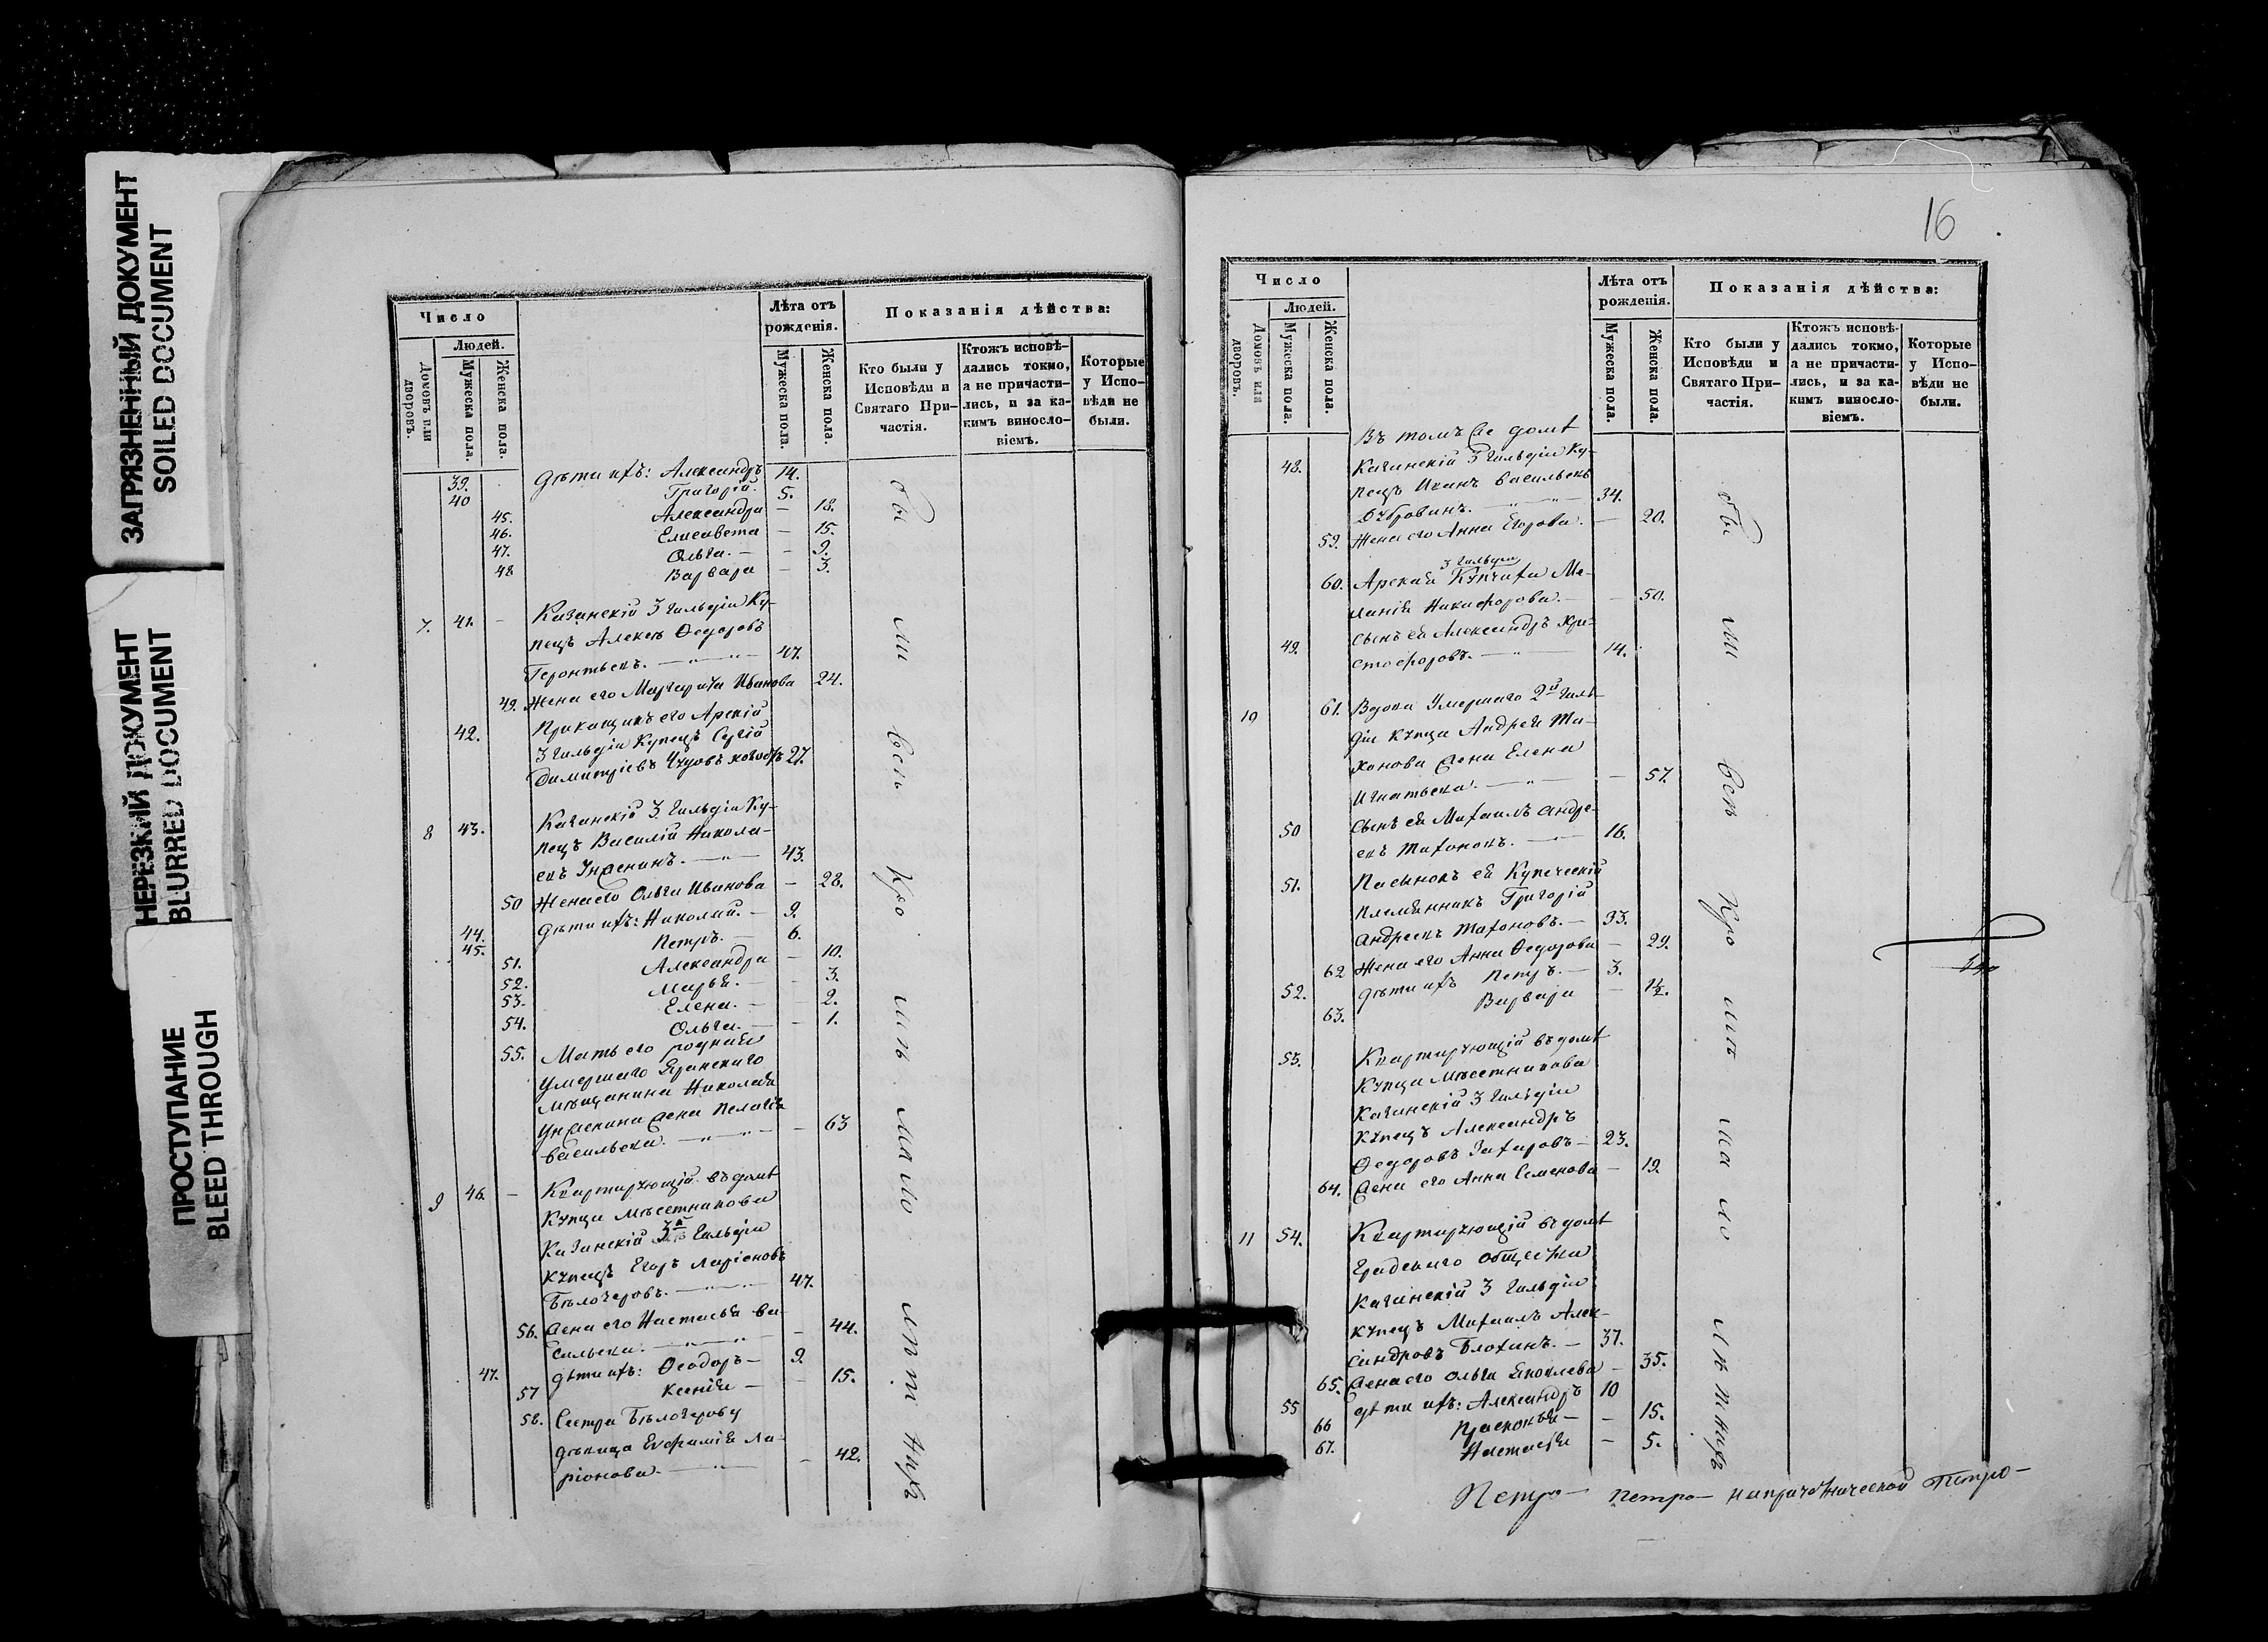 ЗАГРЯЗНЕННЫЙ ДОКУМЕНТ
SOILED DOCUMENT
НЕРЕЗКИЙ ДОКУМЕНТ
BLURRED DOCUMENT
ПРОСТУПАНИЕ
BLEED THROUGH
Число
Людей.
Домовъ или дворовъ.
Мужеска пола.
Женска пола.
Лѣта отъ рожденія.
Мужеска пола.
Женска пола.
Показанія дѣйства:
Кто были у Исповѣди и Святаго Причастія.
Ктожъ исповѣдались токмо, а не причастились, и за какимъ винословіемъ.
Которые у Исповѣди не были.
39. дѣти ихъ: Александръ 14.
40 Григорій. 5.
45. Александра — 18.
46. Елисавета — 15.
47. Ольга. — - 9.
48 Варвара — 3.
7. 41. - Казанскій 3 гильдіи Ку-
пецъ Алексѣй Ѳедоровъ
Геронтьевъ. —„— 47.
49. Жена его Маргарита Иванова 24.
42. Прикащикъ его Арскій
3 гильдіи Купецъ Сергій
Димитріевъ 27.
8 43. Казанскій 3. гильдіи Ку-
пецъ Василій Никола-
евъ Унженинъ. —„— 43.
50 Жена его Ольга Иванова — 28.
44. дѣти ихъ: Николай. — 9.
45. Петръ. — 6.
51. Александра — 10.
52. Марья. — - 3.
53. Елена. — - 2.
54. Ольга. — - 1.
55. Мать его родная
умершаго Яранскаго
мѣщанина Николая
Унженина жена Пелагія
Васильева. —„— — 63
9 46. — Квартирующій въ домѣ
Купца Мѣсетникова
Казанскій 3й Гильдіи
купецъ Егоръ Ларіоновъ
Бѣлозеровъ. —„— 47.
56. жена его Настасья Ва-
сильева. —„— — 44.
47. дѣти ихъ: Ѳеодоръ — 9.
57 Ксенія — - 15.
58. Сестра Бѣлозерову
дѣвица Евфимія Ла-
ріонова. —„— - 42.
бы ли всѣ Кро мѣ мало лѣт нихъ
16
Число
Людей.
Домовъ или дворовъ.
Мужеска пола.
Женска пола.
Лѣта отъ рожденія.
Мужеска пола.
Женска пола.
Показанія дѣйства:
Кто были у Исповѣди и Святаго Причастія.
Ктожъ исповѣдались токмо, а не причастились, и за какимъ винословіемъ.
Которые у Исповѣди не были.
Въ томъ же домѣ
48. Казанскій 3 гильдіи Ку-
пецъ Иванъ Васильевъ
Дубровинъ. —„— 34.
59. Жена его Анна Егорова. — 20.
3 гильдіи
60. Арская Купчиха Ме-
ланія Никифорова. — — 50.
49. Сынъ ея Александръ Хри-
стофоровъ. —„— 14.
10 61. Вдова Умершаго 2й гиль-
діи купца Андрея Ти-
хонова жена Елена
Игнатьева. —„— — 57.
50 Сынъ ея Михаилъ Андре-
евъ Тихоновъ. —„— 16.
51. Пасынокъ ея Купеческій
племянникъ Григорій
Андреевъ Тихоновъ. — 33.
62 Жена его Анна Ѳедорова — 29.
52. дѣти ихъ Петръ. — 3.
63. Варвара — 1½.
53. Квартирующій въ домѣ
Купца Мѣсетникова
Казанскій 3 гильдіи
купецъ Александръ
Ѳедоровъ Захаровъ — 23.
64. жена его Анна Семенова — 19.
11 54. Квартирующій въ домѣ
Градскаго общества
Казанскій 3 гильдіи
купецъ Михаилъ Алек-
сандровъ Блохинъ. — 37.
65. жена его Ольга Яковлева — 35.
55 дѣти ихъ: Александръ 10
66 Прасковья — - 15.
67. Настасья — 5.
бы ли всѣ Кро мѣ ма ло лѣт нихъ
Петро- Петро- Петро-